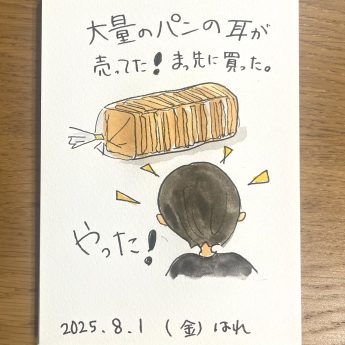 大量のパンの耳が
売ってた!まっ先に買った。
やった!
2025.8.1 (金) はれ